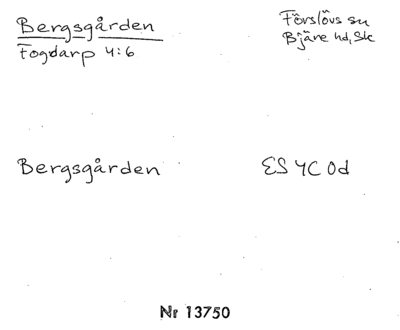 Bergsgården
Fogdarp 4:6
Förslövs sn
Bjäre hd, Sk
Bergsgården
ES 4C 0d
Nr 13750